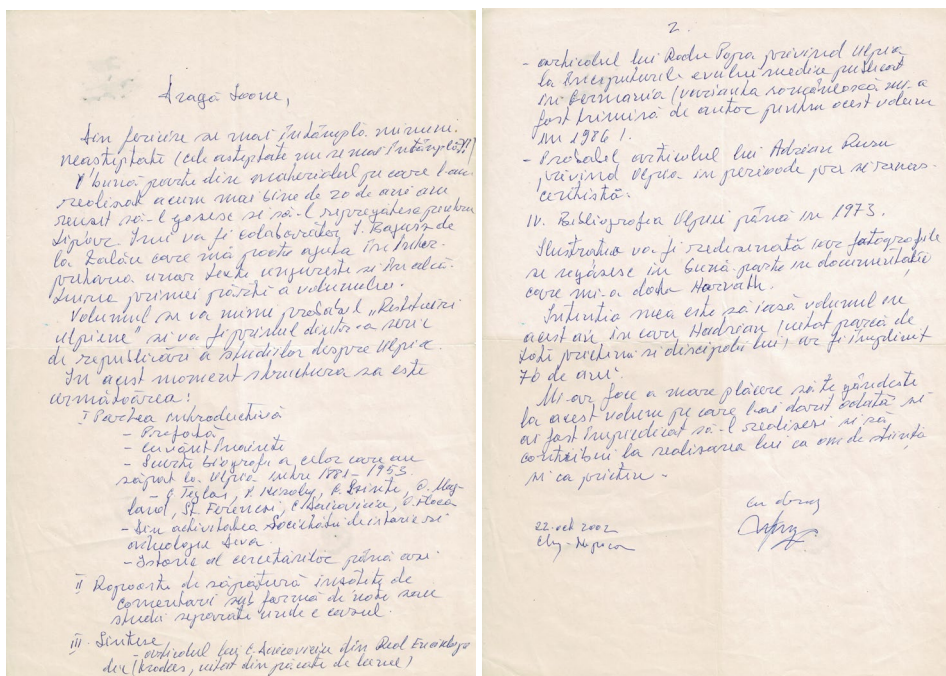 Dragă Ioane,
Din fericire se mai întâmplă minuni
neașteptate (cele așteptate nu se mai întâmplă!)
O bună parte din materialul pe care l-am
realizat acum mai bine de 20 de ani am
reușit să-l găsesc și să-l repregătesc pentru
tipar. Îmi va fi colaborator I. Bajusz de
la Zalău care mă poate ajuta în inter-
pretarea unor texte ungurești și în alcă-
tuirea primei părți a volumului.
Volumul se va numi probabil „Restituiri
ulpiene" și va fi primul dintr-o serie
de republicări a studiilor despre Ulpia.
În acest moment structura sa este
următoarea:
I Partea introductivă
- Prefață
- cuvânt înainte
- Scurte biografii a celor care au
săpat la Ulpia între 1881-1953
- G. Teglas, P. Kiraly, O. Maj-
land, Șt. Ferenczi, C. Daicoviciu, O. Floca
- Din activitatea Societății de istorie și
arheologie Deva
- Istoric al cercetărilor până azi
II Rapoarte de săpătură însoțite de
comentarii sub formă de note sau
studii separate unde e cazul.
III. Sinteze
- articolul lui C. Daicoviciu din Real Enciklopä-
die (Kroder, uitat din păcate de lume)
2.
- articolul lui Radu Popa privind Ulpia
la începuturile evului mediu publicat
în Germania (varianta românească mi-a
fost trimisă de autor pentru acest volum
în 1986).
- Probabil articolul lui Adrian Rusu
privind Ulpia în perioada pre și renas-
centistă.
IV. Bibliografia Ulpiei până în 1973.
Ilustrația va fi redesenată iar fotografiile
se regăsesc în bună parte în documentația
care mi-a dat-o Harvath.
Intenția mea este să iasă volumul în
acest an în care Hadrian (uitat parcă de
toți prietenii și discipolii lui) ar fi împlinit
70 de ani.
Mi-ar face o mare plăcere să te gândești
la acest volum pe care l-ai dorit odată și
ai fost împiedicat să-l realizezi și să
contribui la realizarea lui ca om de știință
și ca prieten.
cu drag
22 oct 2002
Cluj-Napoca